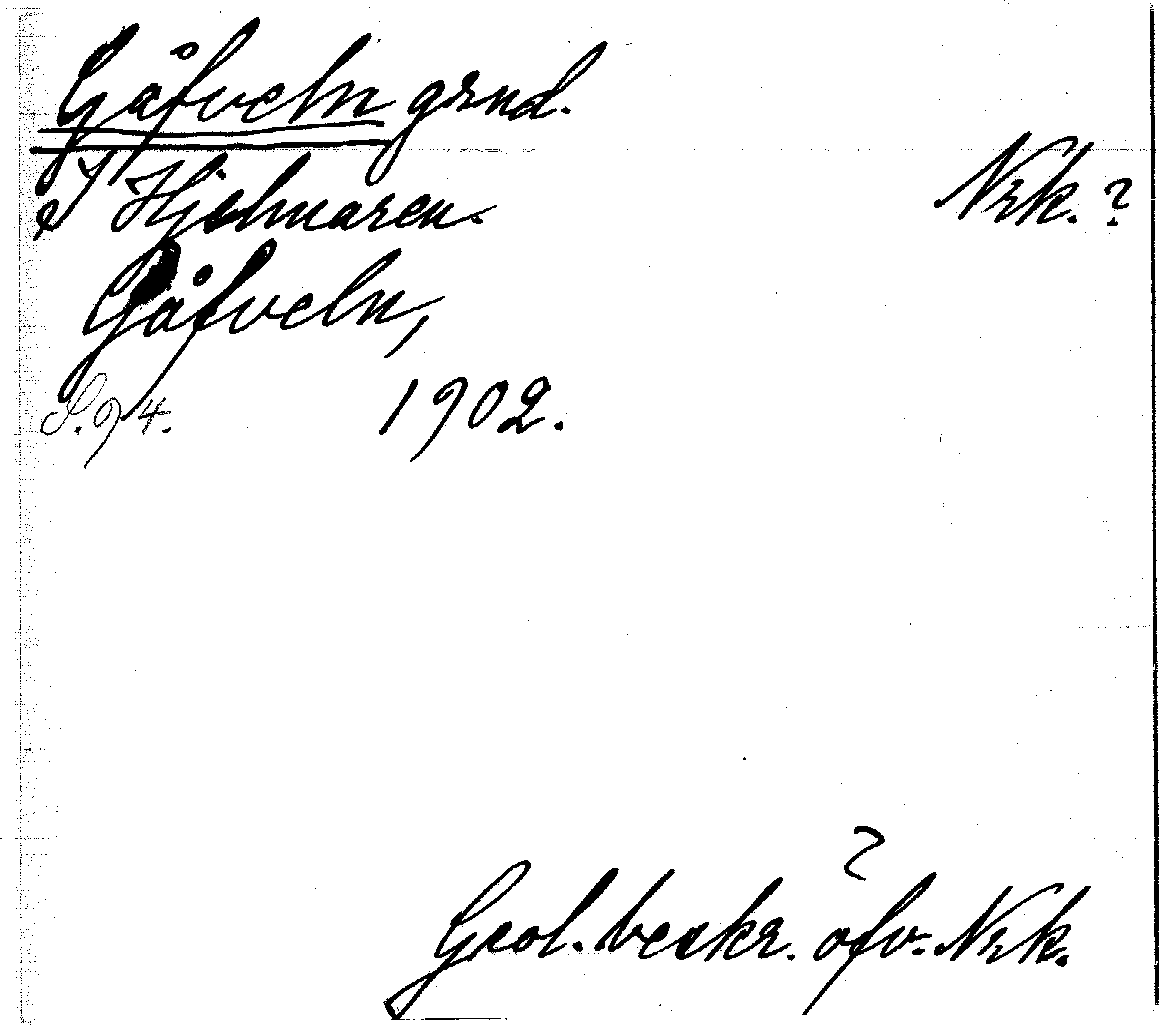 Gåfveln grnd.
I Hjelmaren.
Nrk.?
Gåfveln,
S. 94. 1902.
Geol. beskr. öfv. Nrk.